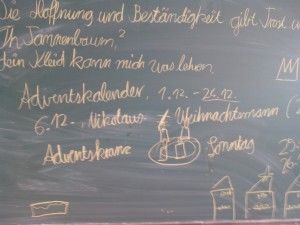 Die Hoffnung und Beständigkeit gibt Trost u
Tannenbaum,
dein Kleid kann mich was lehren.
Adventskalender, 1.12. - 24.12.
6.12. - Nikolaus Weihnachtsmann (
Adventskranz Sonntag